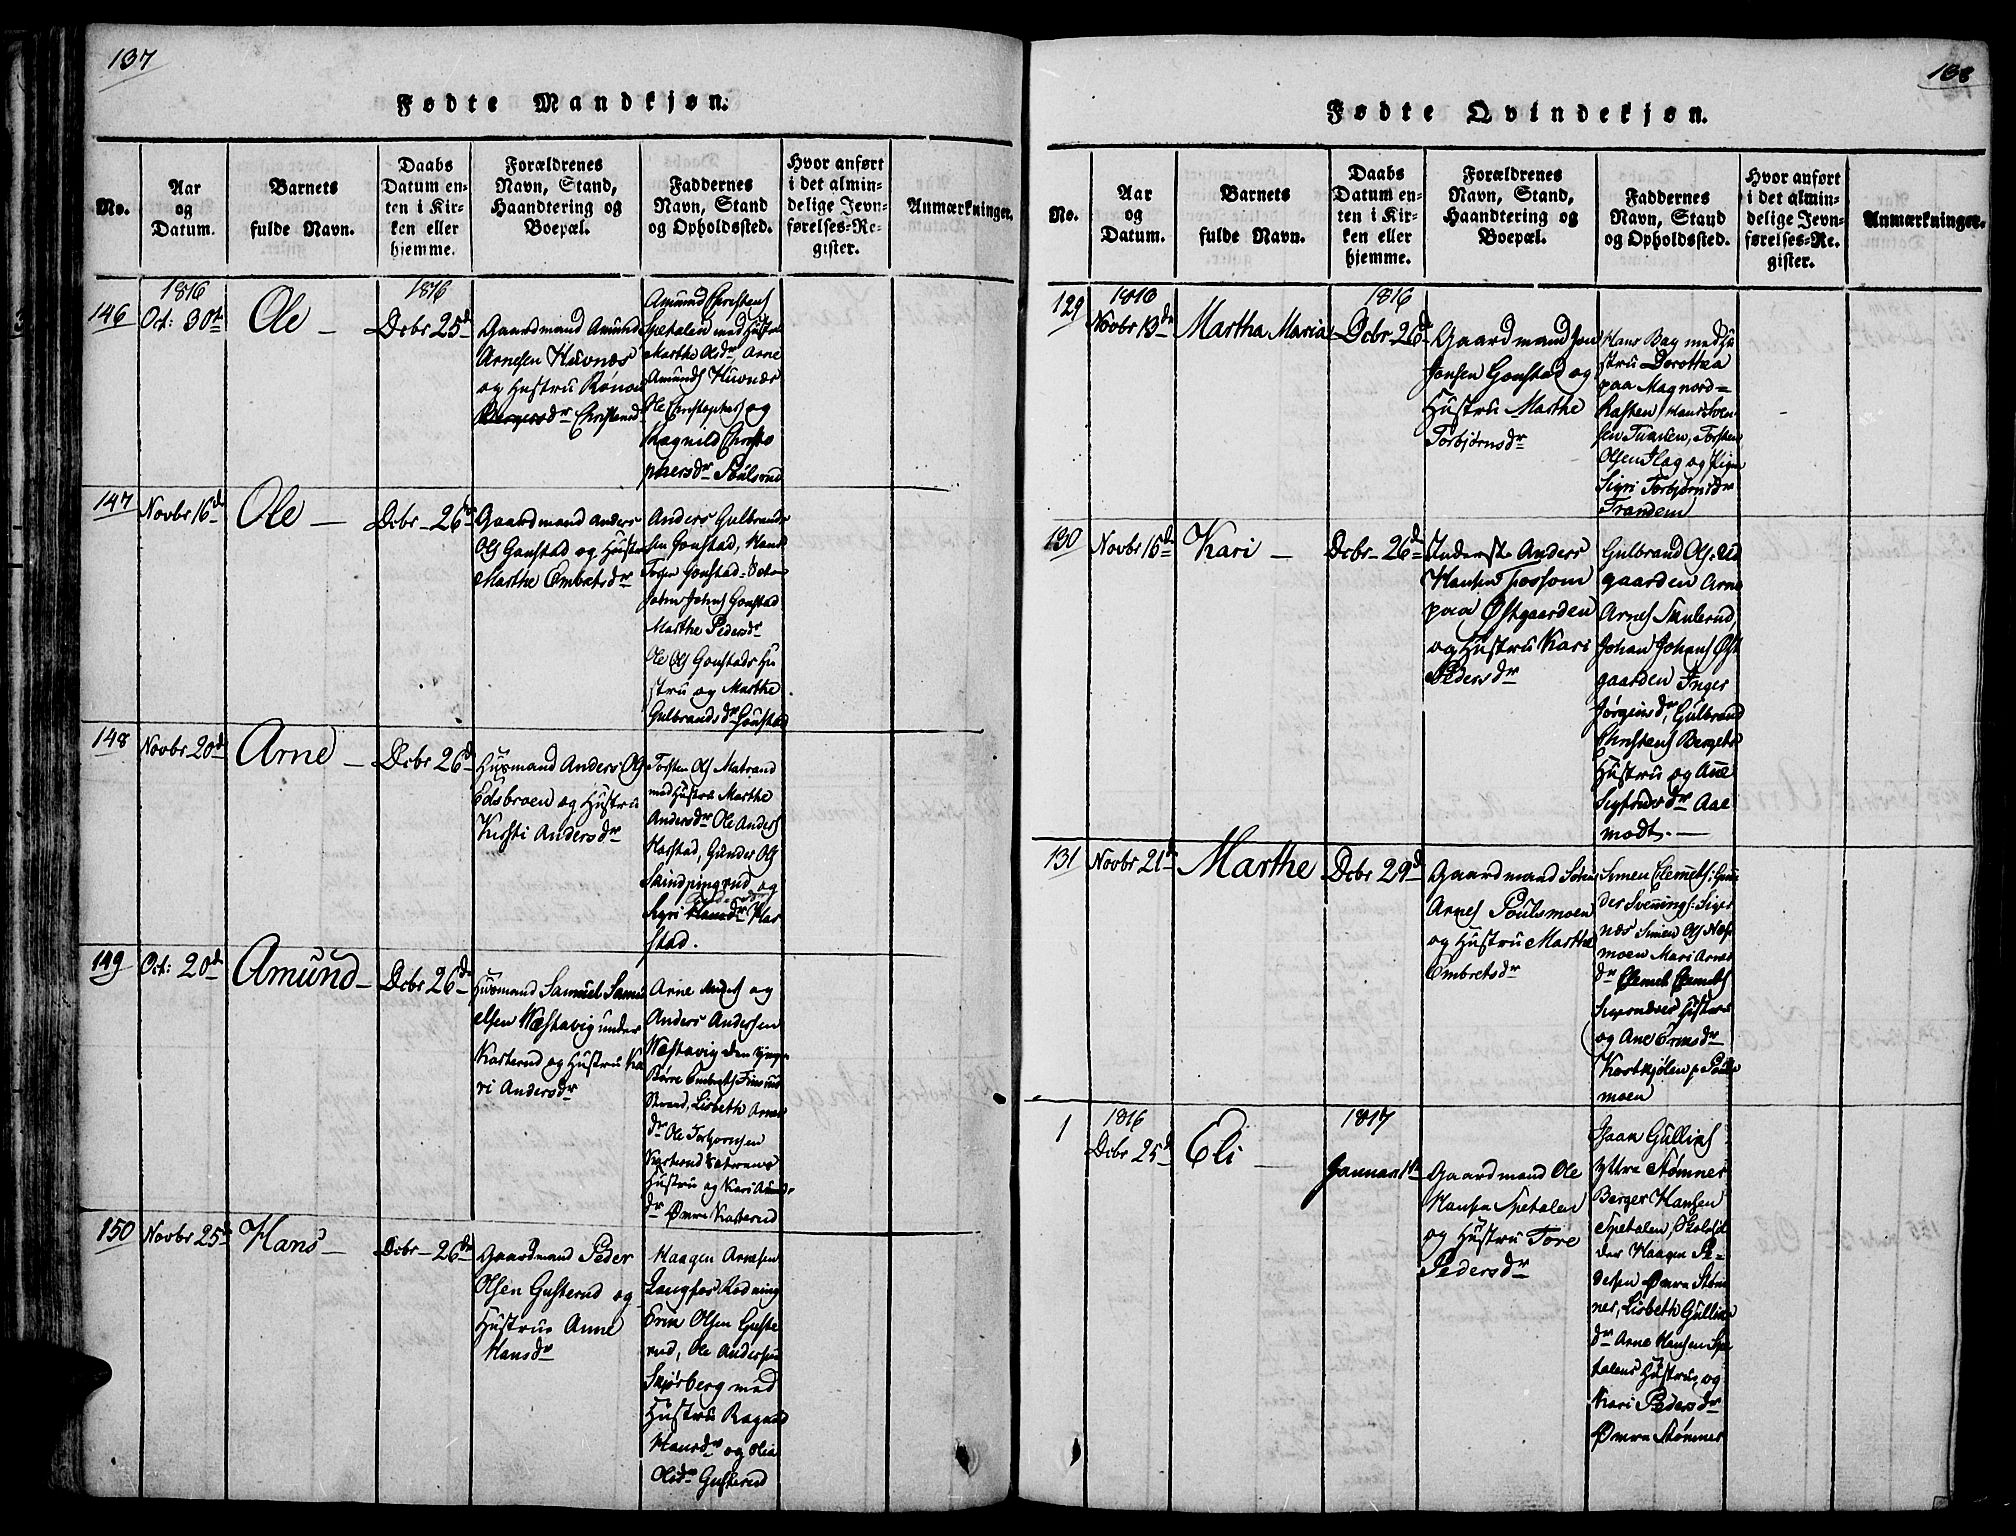 137
Fødte Mandkjøn.
No.
Aar
og
Datum.
Barnets
fulde Navn.
Daabs
Datum en-
ten i Kir-
ken eller
hjemme.
Forældrenes
Navn, Stand,
Haandtering og
Boepæl.
Faddernes
Navn, Stand
og Opholdssted.
Hvor anført
i det almin-
delige Jevn-
førelses-Re-
gister.
Anmærkninger.
146
1816
Oct: 30te
Ole
1816
Dcbr 25d
Gaardmand Amund
Arnesen Huvnæs
og Hustru Rønou
Christensd
Amund Christens
Spetalen med Hustru
Marthe Olsdr Arne
Amunds Huvnæs
Ole Christophers og
Ragnild Christo
phersdr Poulsrud
147
Novbr 16d
Ole
Dcbr 26de
Gaardmand Anders
Ols Gonstad og Hustru
Marthe Embretsdr
Anders Gulbrands
sen Gonstad, Hans
Gonstad
John Johns Gonstad
Marthe Pedersdr
Ole Ols Gonstads Hu
stru og Marthe
Gulbrandsdr Gonstad
148
Novbr 20d
Arne
Dcbr 26d
Husmand Anders Ols
Edsbroen og Hustru
Kirsti Andersdr
Torsten Ols Matrand
med Hustru Marthe
Andersdr Ole Anders
Harstad, Gunder Ols
og
Sigri Har
stad.
149
Oct: 20d
Amund
Dcbr 26de
Husmand Samuel Samu
elsen Wæstavig under
Kasterud og Hustru Ka
ri Andersdr
Arne Anders og
Anders Andersen
Wæstavig den Yngre
Børre Embrets
Strand, Lisbeth Arne
dr Ole Torbjørnsen
Kasterud
Hustru og Kari Amund
dr Øvre Kasterud
150
Novbr 25d
Hans
Dcbr 26de
Gaardmand Peder
Olsen Gusterud og
Hustrue Anne
Hansdr
Haagen Arnesen
Langfos Rødning
Erik Olsen Guste
rud, Ole Andersen
Skjørberg med
Hustru Ragnild
Hansdr og Olia
Olsdr Gusterud
138
Fødte Qvindekjøn.
No.
Aar
og
Datum.
Barnets
fulde Navn.
Daabs
Datum en-
ten i Kir-
ken eller
hjemme.
Forældrenes
Navn, Stand,
Haandtering og
Boepæl.
Faddernes
Navn, Stand
og Opholdssted.
Hvor anført
i det almin-
delige Jevn-
førelses-Re-
gister.
Anmærkninger.
129
1816
Novbr 13de
Martha Maria
1816
Dcbr 26d
Gaardmand Jon
Jonsen Gonstad og
Hustru Marthe
Torbjørnsdr
Hans Bag med Hu
stru Dorothea
paa Magnord=
Hasten, Hans Sven
sen Torsten
Olsen Flag og Pigen
Sigri Torbjørnsdr
Trandem
130
Novbr 16d
Kari
Dcbr 26d
Anders
Hansen Fossom
paa Østgaarden
og Hustru Kari
Pedersdr
Gulbrand Ols
gaarden Arne
Arnes Skulerud,
Johan Johans Øst
gaarden Inger
Jørgensdr, Gulbrand
Christens Bergets
Hustru og Ane
Sigfredsdr Aae
modt.
131
Novbr 21de
Marthe
Dcbr 29d
Gaardmand Søren
Arnes Poulsmoen
og Hustru Marthe
Embretsdr
Simen Clemets, Gun
der Svennings: Siger
næs Simen Ols Næs
moen Mari Arnes
dr Clemet Clemets
Sigernæs Hustru
og Ane
Kortkjølen p Pouls
moen
1
1816
Dcbr 25d
Eli
1817
Januar 1te
Gaardmand Ole
Hansen Spetalen
og Hustru Tore
Pedersdr
Isaan Gulliks
Yttre Stømner
Berger Hansen
Spetalen, Skolehol
der Haagen Pe
dersen Øvre Støm
ner, Lisbeth Gulliks
dr Arne Hansen Spe
talens Hustru og
Kari Pedersdr
Øvre Stømner